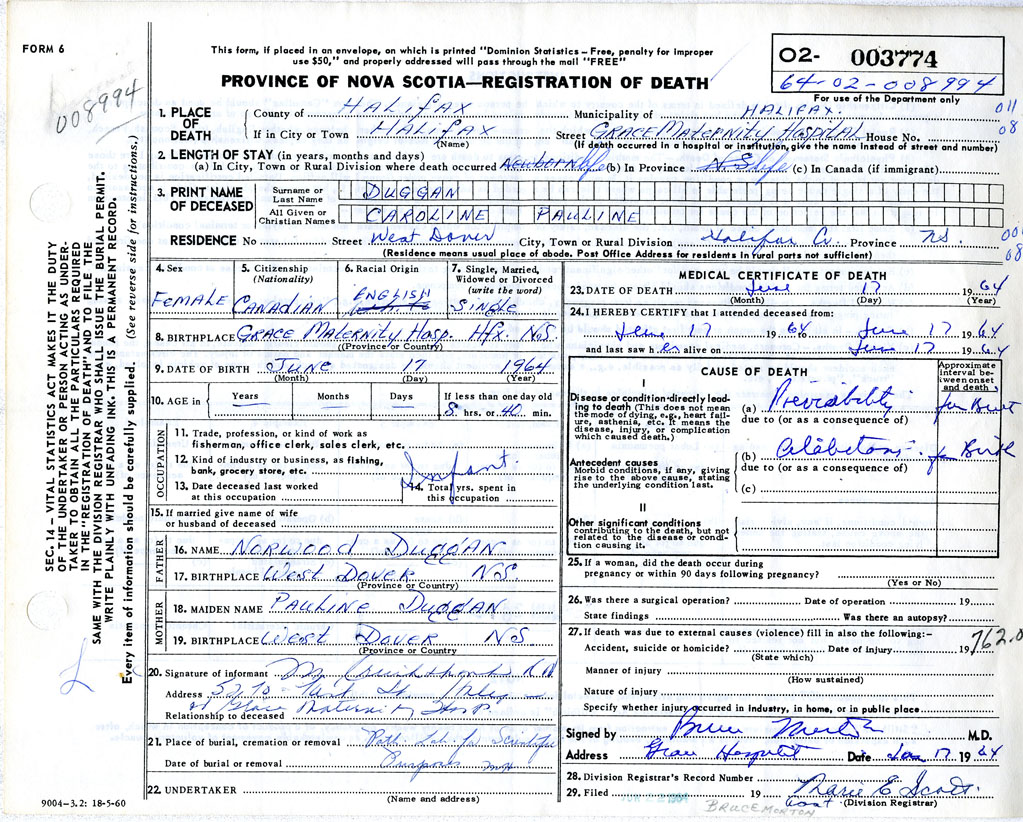 FORM 6
008994
This form, if placed in an envelope, on which is printed "Dominion Statistics – Free, penalty for improper
use $50," and properly addressed will pass through the mail "FREE"
PROVINCE OF NOVA SCOTIA—REGISTRATION OF DEATH
O2- 003774
64-02-008994
For use of the Department only
SEC. 14 – VITAL STATISTICS ACT MAKES IT THE DUTY
OF THE UNDERTAKER OR PERSON ACTING AS UNDER-
TAKER TO OBTAIN ALL THE PARTICULARS REQUIRED
IN THE "REGISTRATION OF DEATH" AND TO FILE THE
SAME WITH THE DIVISION REGISTRAR WHO SHALL ISSUE THE BURIAL PERMIT.
WRITE PLAINLY WITH UNFADING INK. THIS IS A PERMANENT RECORD.
Every item of information should be carefully supplied. (See reverse side for instructions.)
1. PLACE OF DEATH
County of HALIFAX Municipality of HALIFAX. 011
If in City or Town HALIFAX Street GRACE MATERNITY HOSPITAL House No. 08
(Name) (If death occurred in a hospital or institution, give the name instead of street and number)
2. LENGTH OF STAY (in years, months and days)
(a) In City, Town or Rural Division where death occurred NEWBORN life (b) In Province NS life (c) In Canada (if immigrant)
3. PRINT NAME OF DECEASED
Surname or Last Name DUGGAN
All Given or Christian Names CAROLINE PAULINE
RESIDENCE No Street West Dover City, Town or Rural Division Halifax Co. Province NS.
08
(Residence means usual place of abode. Post Office Address for residents in rural parts not sufficient)
4. Sex
FEMALE
5. Citizenship (Nationality)
CANADIAN
6. Racial Origin
ENGLISH
7. Single, Married, Widowed or Divorced (write the word)
SINGLE
8. BIRTHPLACE GRACE MATERNITY HOSP. HFX NS
(Province or Country)
9. DATE OF BIRTH JUNE 17 1964
(Month) (Day) (Year)
10. AGE in Years Months Days If less than one day old
8 hrs. or 40 min.
OCCUPATION
11. Trade, profession, or kind of work as
fisherman, office clerk, sales clerk, etc.
12. Kind of industry or business, as fishing,
bank, grocery store, etc.
Infant.
13. Date deceased last worked
at this occupation
14. Total yrs. spent in
this occupation
15. If married give name of wife
or husband of deceased
FATHER
16. NAME NORWOOD DUGGAN
17. BIRTHPLACE WEST DOVER NS
(Province or Country)
MOTHER
18. MAIDEN NAME PAULINE DUGGAN
19. BIRTHPLACE WEST DOVER NS
(Province or Country
20. Signature of informant
Address
Grace Maternity Hosp.
Relationship to deceased
21. Place of burial, cremation or removal Path. Lab for Scientific
Date of burial or removal Purposes
22. UNDERTAKER
(Name and address)
9004–3.2: 18-5-60
MEDICAL CERTIFICATE OF DEATH
23. DATE OF DEATH June 17 1964
(Month) (Day) (Year)
24. I HEREBY CERTIFY that I attended deceased from:
June 17 1964 to June 17 1964
and last saw her alive on June 17 1964
CAUSE OF DEATH
Approximate interval be-tween onset and death
I
Disease or condition directly lead-
ing to death (This does not mean
the mode of dying, e.g., heart fail-
ure, asthenia, etc. It means the
disease, injury, or complication
which caused death.)
(a) Previability for Birth
due to (or as a consequence of)
Antecedent causes
Morbid conditions, if any, giving
rise to the above cause, stating
the underlying condition last.
(b) for Birth
due to (or as a consequence of)
(c)
II
Other significant conditions
contributing to the death, but not
related to the disease or condi-
tion causing it.
25. If a woman, did the death occur during
pregnancy or within 90 days following pregnancy?
(Yes or No)
26. Was there a surgical operation? Date of operation 19
State findings Was there an autopsy?
27. If death was due to external causes (violence) fill in also the following:–
Accident, suicide or homicide? Date of injury 19
(State which)
762.0
Manner of injury
(How sustained)
Nature of injury
Specify whether injury occurred in industry, in home, or in public place
Signed by Bruce Morton M.D.
Address Grace Hospital Date June 17 1964
28. Division Registrar's Record Number
29. Filed 19 Marie E Scott
(Division Registrar)
BRUCE MORTON